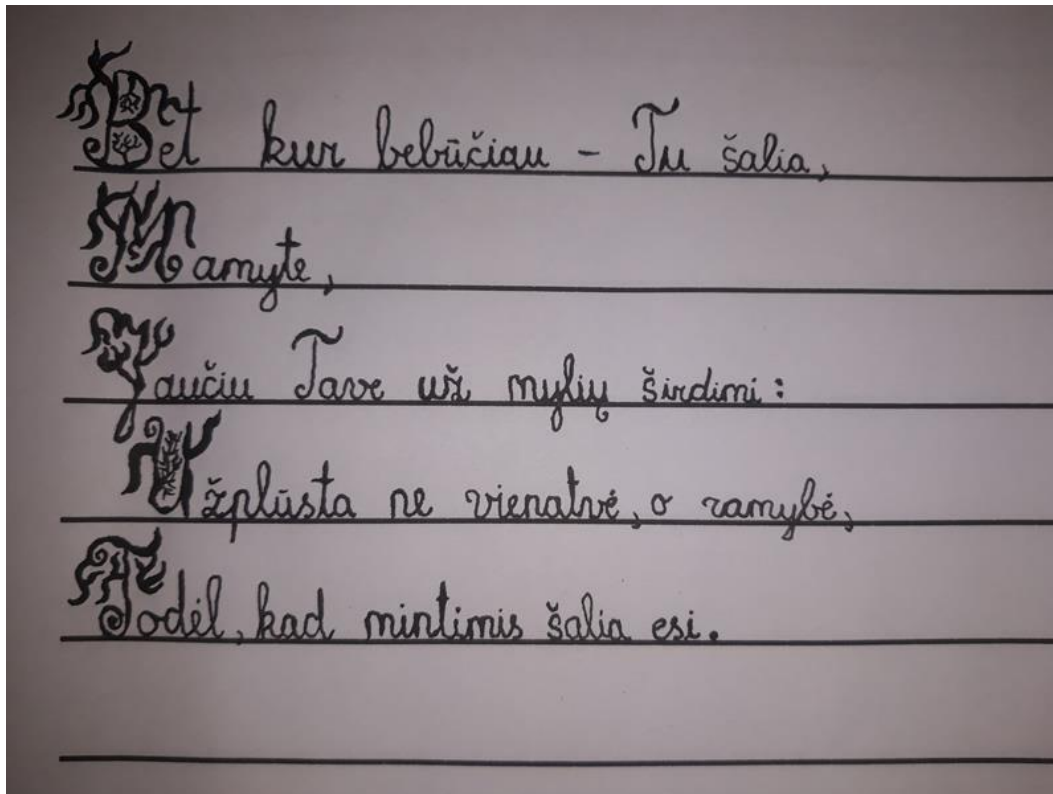 Bet kur bebūčiau - Tu šalia,
Mamyte,
Jaučiu Tave už mylių širdimi:
Užplūsta ne vienatvė, o ramybė,
Todėl, kad mintimis šalia esi.